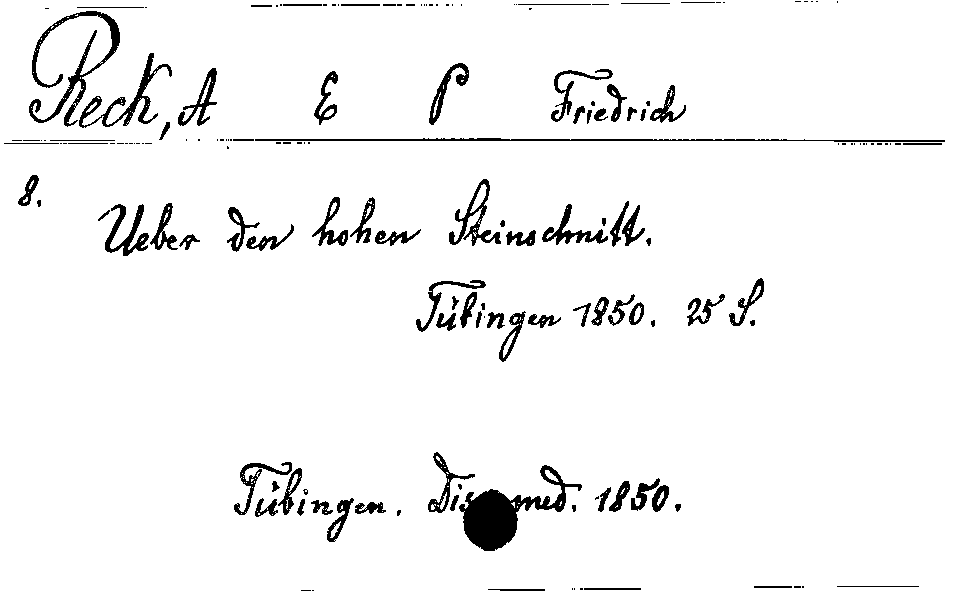 Reck, A E P Friedrich
8.
Ueber den hohen Steinschnitt.
Tübingen 1850. 25 S.
Tübingen. Dis med. 1850.